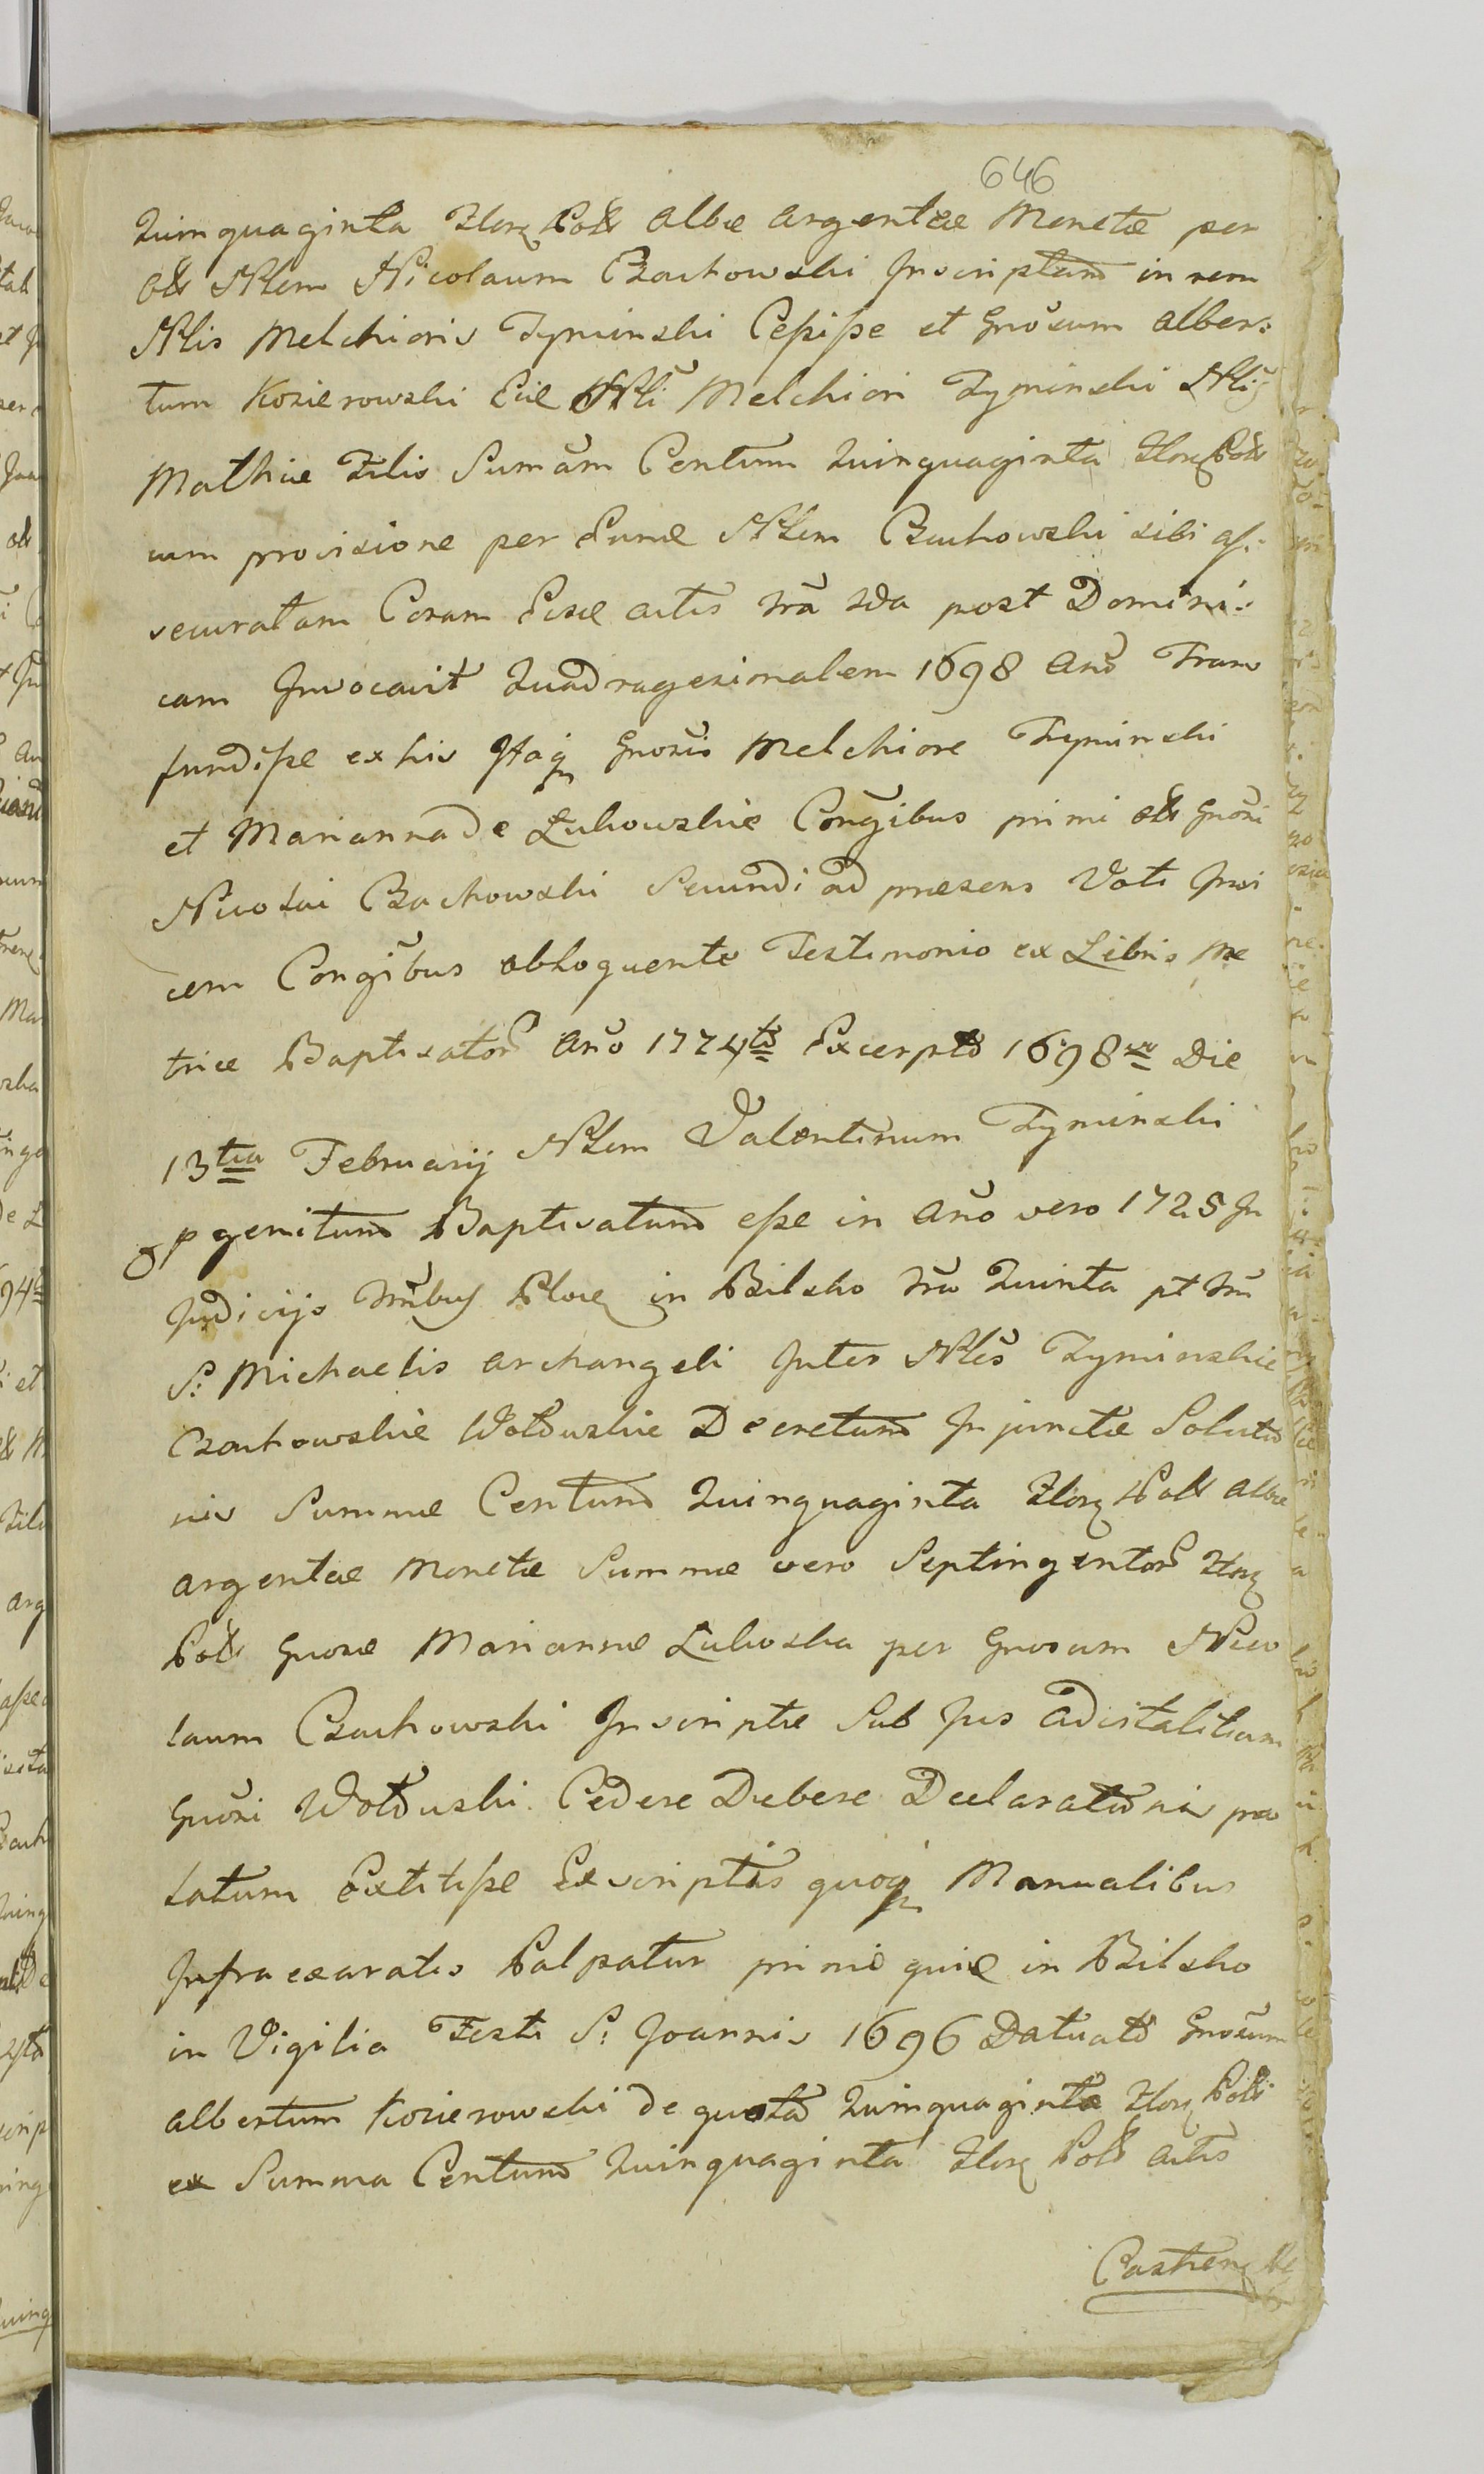 646
Quinquaginta Flor Poll albæ argentæ Monetæ per
olr Nblem Nicolaum Czachowski Inscriptam in rem
Nblis Melchioris Tyminski Cessisse et Gnosum alber:
tum Kozierowski Nbli Melchiori Tyminski Nblis
Mathiæ Filio Sumam Centum Quinquaginta Flor Poll
cum provisione per Nblem Czachowski sibi as:
securatam Coram actis fria 2da post Domini:
cam Invocavit Quadragesimalem 1698 Ano Trans
fundisse ex his Itaq Gnosis Melchiore Tyminski
et Marianna de Lukowskie Congibus primi olr Gnosi
Nicolai Czachowski Secundi ad præsens Voti Invi
cem Congibus obloquente Testimonio ex Libris Me
tricæ Baptisator Ano 1724to Excerpto 1698vo Die
13tia Februarij Nblem Valentinum Tyminski
pgenitum Baptisatum esse in Ano vero 1725 In
Judicijs Trribus Ploc in Bilsko fria Quinta pt fm
S: Michaelis archangeli Inter Nbles Tyminskie
Czachowskie Wolduskie Decretum Injunctæ Solutio
nis Summæ Centum Quinquaginta Flor Poll albæ
argentæ Monetæ Summæ vero Septingentor Flor
Poll Gnosæ Mariannæ Lukoska per Gnosum Nico
laum Czachowski Inscriptæ Sub Jus advitalitium
Gnosi Wolduski Cedere Debere Declarationis pro
latum Extitisse Exscriptis quoq Manualibus
Infra exaratis Palpatur primo quia in Bilsko
in Vigilia Festi S: Joannis 1696 Datuato Gnosum
albertum Kozierowski de quota Quinquaginta Flor Poll
ex Summa Centum Quinquaginta Flor Poll actis